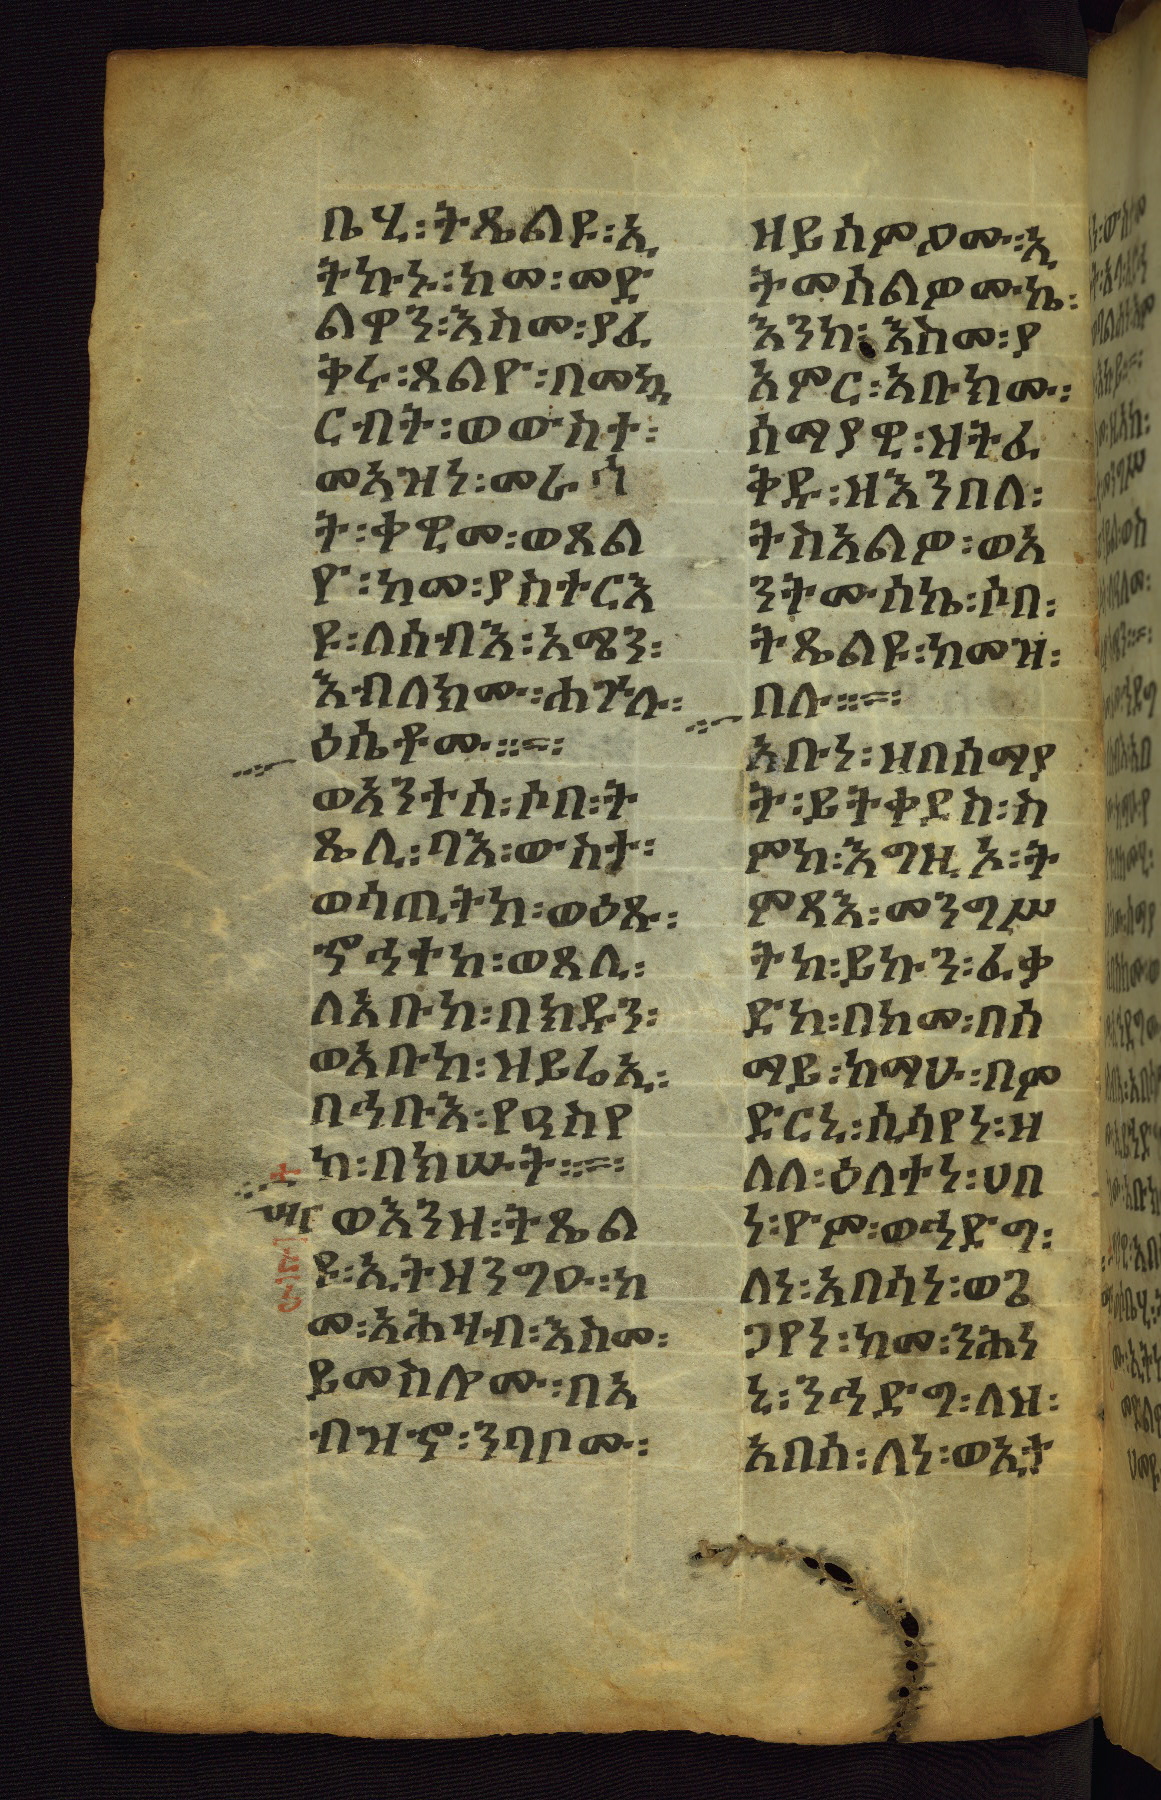 ቤሂ፡ትጼልዩ፡ኢ
ትኩኑ፡ከመ፡መደ
ልዋን፡እስመ፡ያፈ
ቅሩ፡ጸልዮ፡በመኳ
ርብት፡ወውስተ፡
መእዝነ፡መራኅ
ት፡ቀዊመ፡ወጸል
ዮ፡ከመ፡ያስተርእ
ዩ፡ለሰብእ፡አሜን፡
እብለክሙ፡ሐጐሉ፡
ዕሴቶሙ።
ወአንተሰ፡ሶበ፡ት
ጼሊ፡ባእ፡ውስተ፡
ወሳጢትከ፡ወዕጹ፡
ኆኅተከ፡ወጸሊ፡
ለአቡከ፡በክዱን፡
ወአቡከ፡ዝይሬኢ፡
በኅቡእ፡የዓስየ
ከ፡በክሡት።
ወእንዘ፡ትጼል
ዩ፡ኢትዝንግዑ፡ከ
መ፡አሕዛብ፡እስመ፡
ይመስሎሙ፡በእ
ብዝኆ፡ንባቦሙ፡
ዘይሰምዖሙ፡ኢ
ትመሰልዎሙኬ፡
እንከ፡እስመ፡ያ
አምር፡አቡክሙ፡
ሰማያዊ፡ዝትፈ
ቅዱ፡ዘእንበለ፡
ትስእልዎ፡ወአ
ንትሙሰኬ፡ሶበ፡
ትጼልዩ፡ከመዝ፡
በሉ።
አቡነ፡ዘበሰማያ
ት፡ይትቀደስ፡ስ
ምከ፡እግዚኦ፡ት
ምጻእ፡መንግሥ
ትከ፡ይኩን፡ፈቃ
ድከ፡በከመ፡በሰ
ማይ፡ከማሁ፡በም
ድርኒ፡ሲሳየነ፡ዘ
ለለ፡ዕለተነ፡ሀበ
ነ፡ዮም፡ወኅድግ፡
ለነ፡አበሳነ፡ወጌ
ጋየነ፡ከመ፡ንሕነ
ኒ፡ንኅድግ፡ለዝ፡
አበሰ፡ለነ፡ወኢት